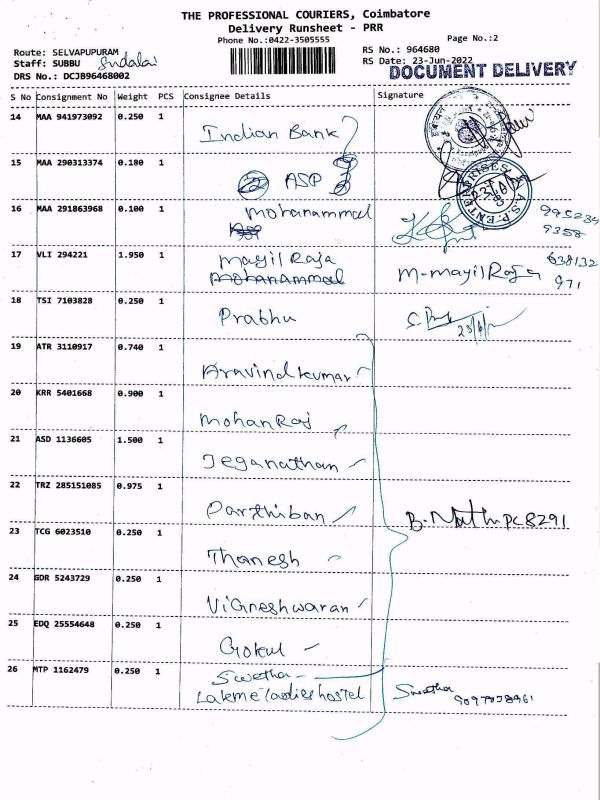 THE PROFESSIONAL COURIERS, Coimbatore
Delivery Runsheet - PRR
Phone No.:0422-3505555
Page No.:2
Route: SELVAPUPURAM
RS No.: 964680
Staff: SUBBU Sudalai
RS Date: 23-Jun-2022
DRS No.: DCJB96468002
DOCUMENT DELIVERY
S No Consignment No Weight PCS Consignee Details Signature
14 MAA 941973092 0.250 1
Indian Bank
15 MAA 290313374 0.180 1
ASP
A.S.P. ENTERPRISES
16 MAA 291863968 0.100 1 Mohanammal
17 VLI 294221 1.950 1 Mayil Raja
Mohanammal
M-Mayil Raja 638132
971
18 TSI 7103828 0.250 1
Prabhu
23/6/
19 ATR 3110917 0.740 1
Aravind kumar
20 KRR 5401668 0.900 1
Mohan Raj
21 ASD 1136605 1.500 1
Jeganathan
22 TRZ 285151085 0.975 1
Parthiban
PC 8291
23 TCG 6023510 0.250 1
Thanesh
24 GDR 5243729 0.250 1
ViGneshwaran
25 EDQ 25554648 0.250 1
Gokul
26 MTP 1162479 0.250 1 Swetha
Lakme ladies hostel Swetha